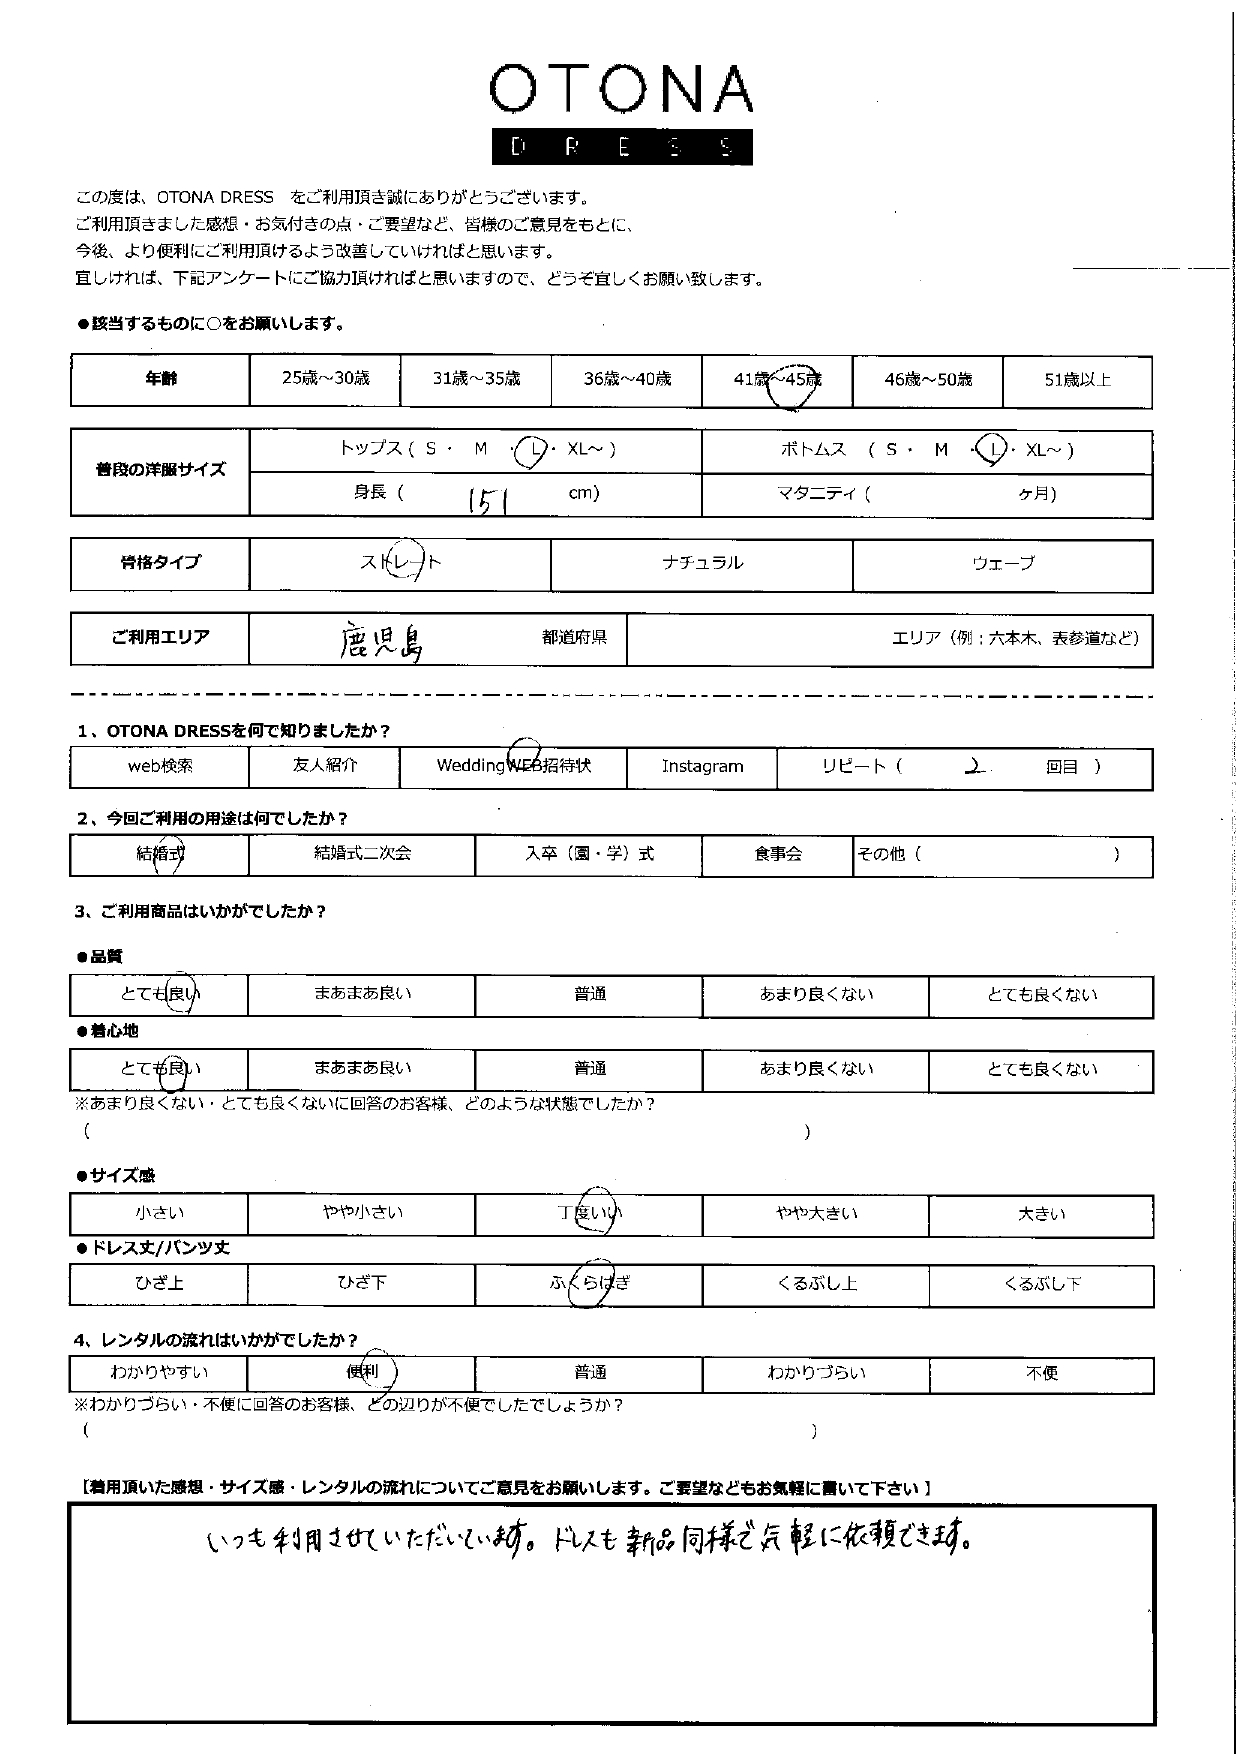 OTONA
DRESS
この度は、OTONA DRESS をご利用頂き誠にありがとうございます。
ご利用頂きました感想・お気付きの点・ご要望など、皆様のご意見をもとに、
今後、より便利にご利用頂けるよう改善していければと思います。
宜しければ、下記アンケートにご協力頂ければと思いますので、どうぞ宜しくお願い致します。
●該当するものに○をお願いします。
年齢 25歳～30歳 31歳～35歳 36歳～40歳 41歳～45歳 46歳～50歳 51歳以上
普段の洋服サイズ トップス ( S ・ M ・ L ・ XL～ ) ボトムス ( S ・ M ・ L ・ XL～ )
身長 ( 151 cm) マタニティ ( ヶ月)
骨格タイプ ストレート ナチュラル ウェーブ
ご利用エリア 鹿児島 都道府県 エリア（例：六本木、表参道など）
1、OTONA DRESSを何で知りましたか？
web検索 友人紹介 WeddingWEB招待状 Instagram リピート ( 2 回目 )
2、今回ご利用の用途は何でしたか？
結婚式 結婚式二次会 入卒（園・学）式 食事会 その他 ( )
3、ご利用商品はいかがでしたか？
●品質
とても良い まあまあ良い 普通 あまり良くない とても良くない
●着心地
とても良い まあまあ良い 普通 あまり良くない とても良くない
※あまり良くない・とても良くないに回答のお客様、どのような状態でしたか？
( )
●サイズ感
小さい やや小さい 丁度いい やや大きい 大きい
●ドレス丈/パンツ丈
ひざ上 ひざ下 ふくらはぎ くるぶし上 くるぶし下
4、レンタルの流れはいかがでしたか？
わかりやすい 便利 普通 わかりづらい 不便
※わかりづらい・不便に回答のお客様、どの辺りが不便でしたでしょうか？
( )
【着用頂いた感想・サイズ感・レンタルの流れについてご意見をお願いします。ご要望などもお気軽に書いて下さい】
いつも利用させていただいています。ドレスも新品同様で気軽に依頼できます。